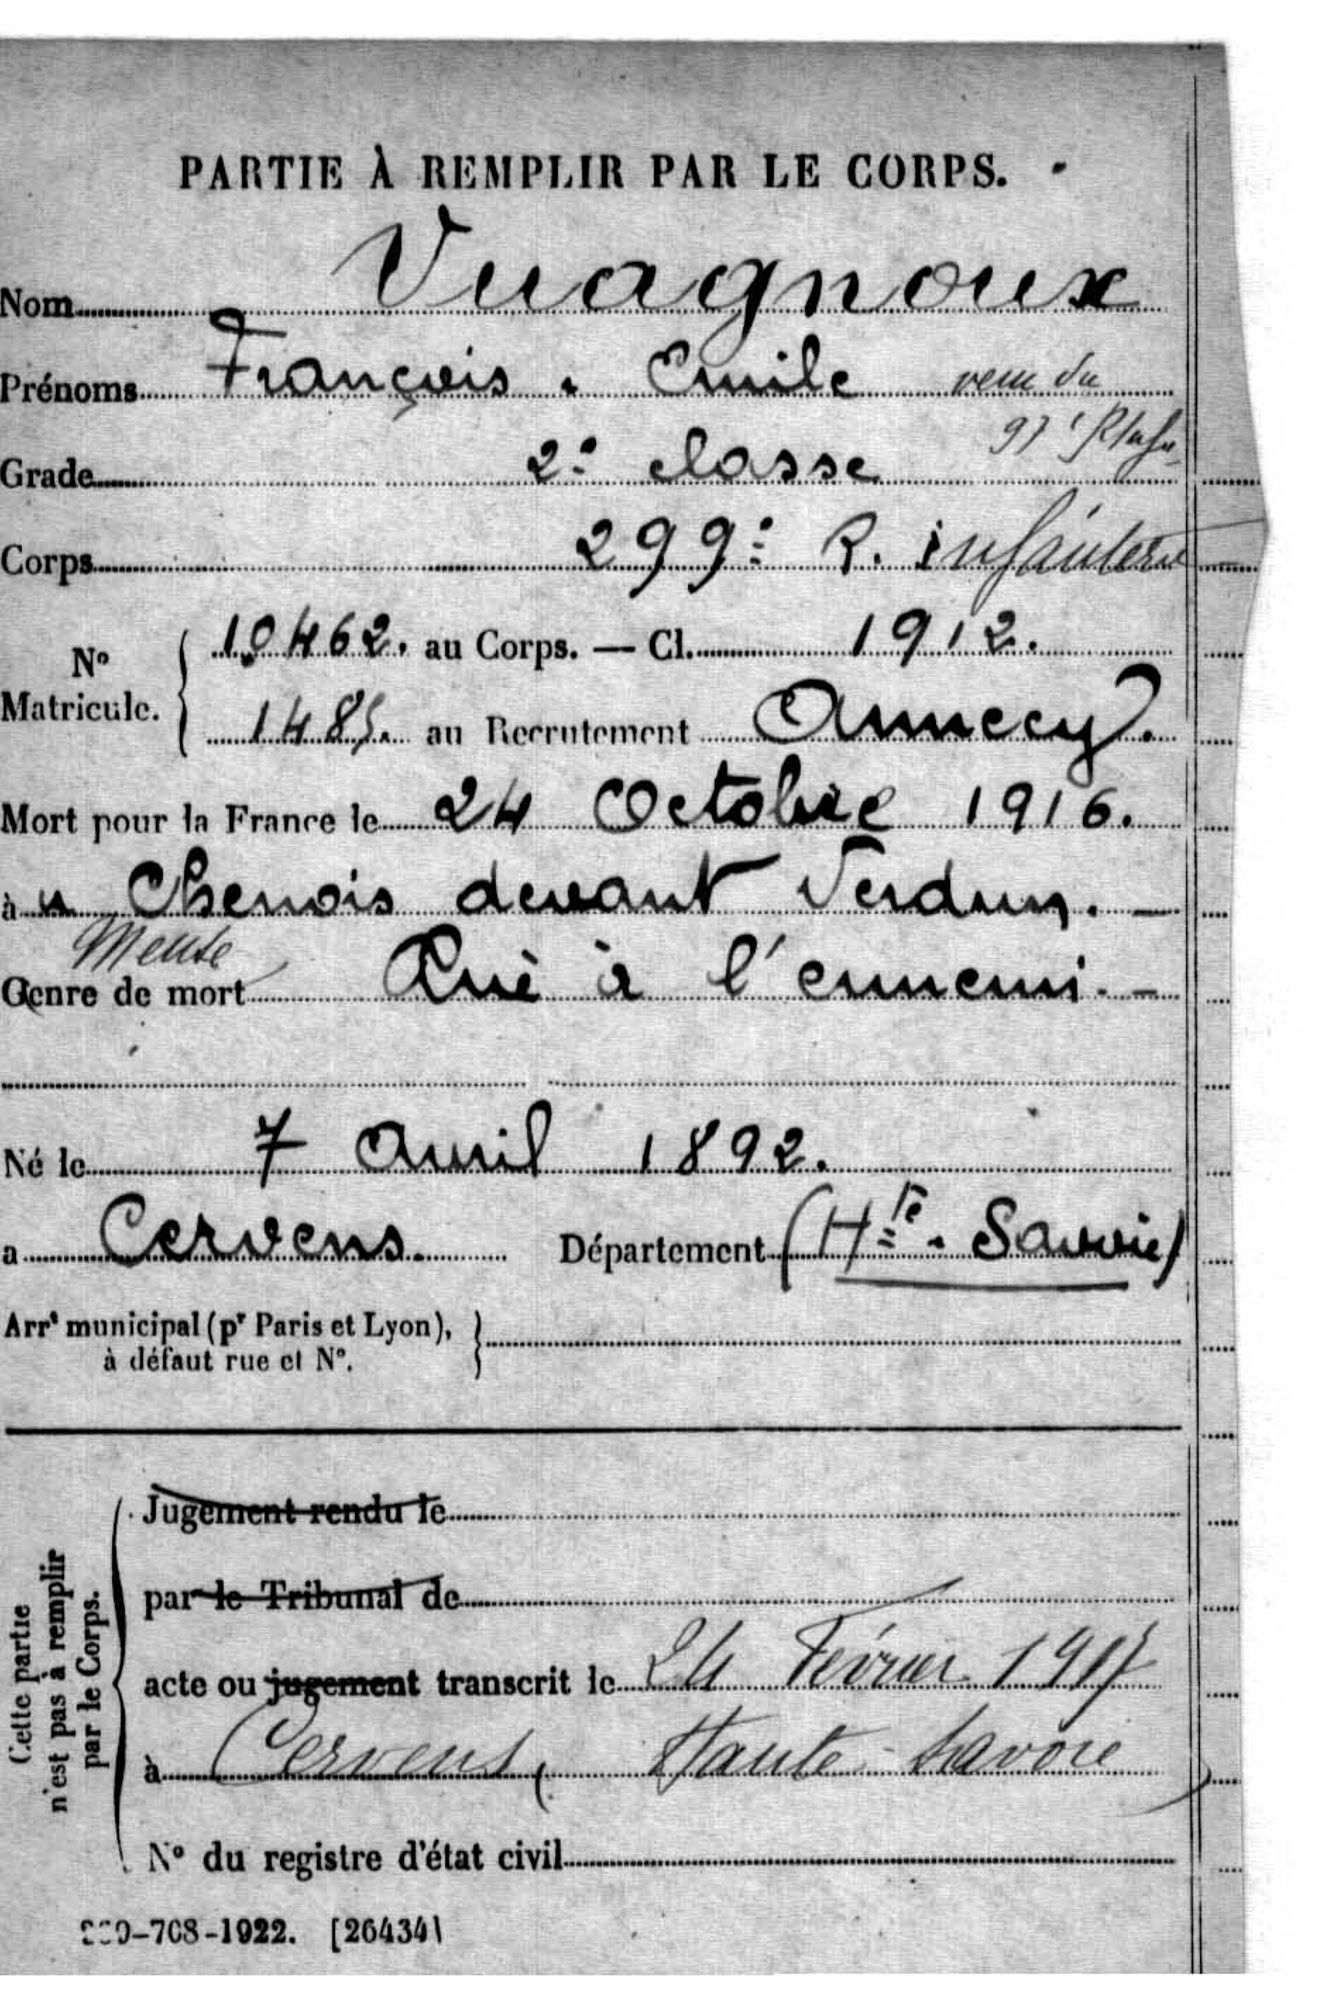 PARTIE À REMPLIR PAR LE CORPS.
Nom Vuagnoux
Prénoms François. Emile venu du
Grade 2e classe 97e
Corps 299e R. infanterie
No Matricule. 10462. au Corps. — Cl. 1912.
1485. au Recrutement Annecy.
Mort pour la France le 24 Octobre 1916.
à Chenois devant Verdun. —
Meuse
Genre de mort Tué à l'ennemi. —
Né le 7 Avril 1892.
a Cervens. Département (Hte. Savoie)
Arrt municipal (pr Paris et Lyon),
à défaut rue et N°.
Cette partie n'est pas à remplir par le Corps.
Jugement rendu le
par le Tribunal de
acte ou jugement transcrit le 24 Février 1917
à Cervens, Haute-Savoie
N° du registre d'état civil
-708-1922. [26434]